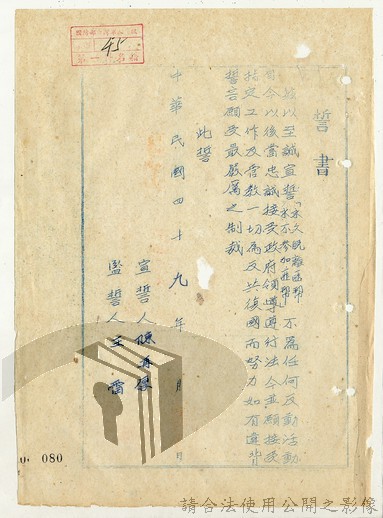 誓書
余以至誠宣誓「永久脫離匪幫永不參加匪幫」不為任何反動活動
自今以後當忠誠接受政府領導遵行法令並願接受
指定工作及管教一切為反共復國而努力如有違背
誓言願受最嚴厲之制裁
此誓
宣誓人陳再
監誓人王雷
中華民國四十九年 月 日
45
080
請合法使用公開之影像